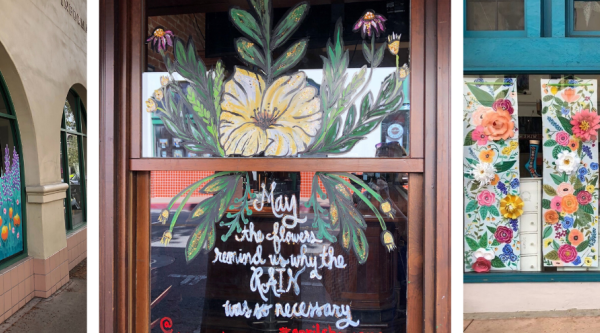 May
the flowers
remind us why the
RAIN
was so necessary